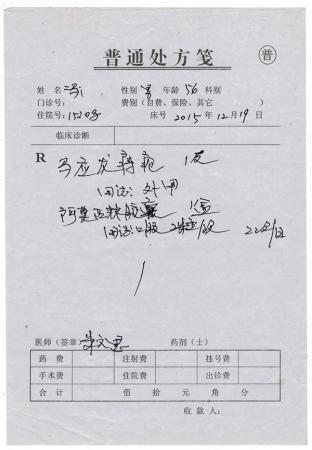 普通处方笺
普
姓名 冯 性别 男 年龄 56 科别
门诊号: 费别（自费、保险、其它 ）
住院号: 床号 2015 年 12 月 19 日
临床诊断
R 马应龙痔疮 1支
用法: 外用
阿莫西林胶囊 1盒
用法: 口服 2粒/次 2次/日
医师（签章） 药剂（士）
药 费 注射费 挂号费
手术费 住院费 出诊费
合 计 佰 拾 元 角 分
收 款 人: